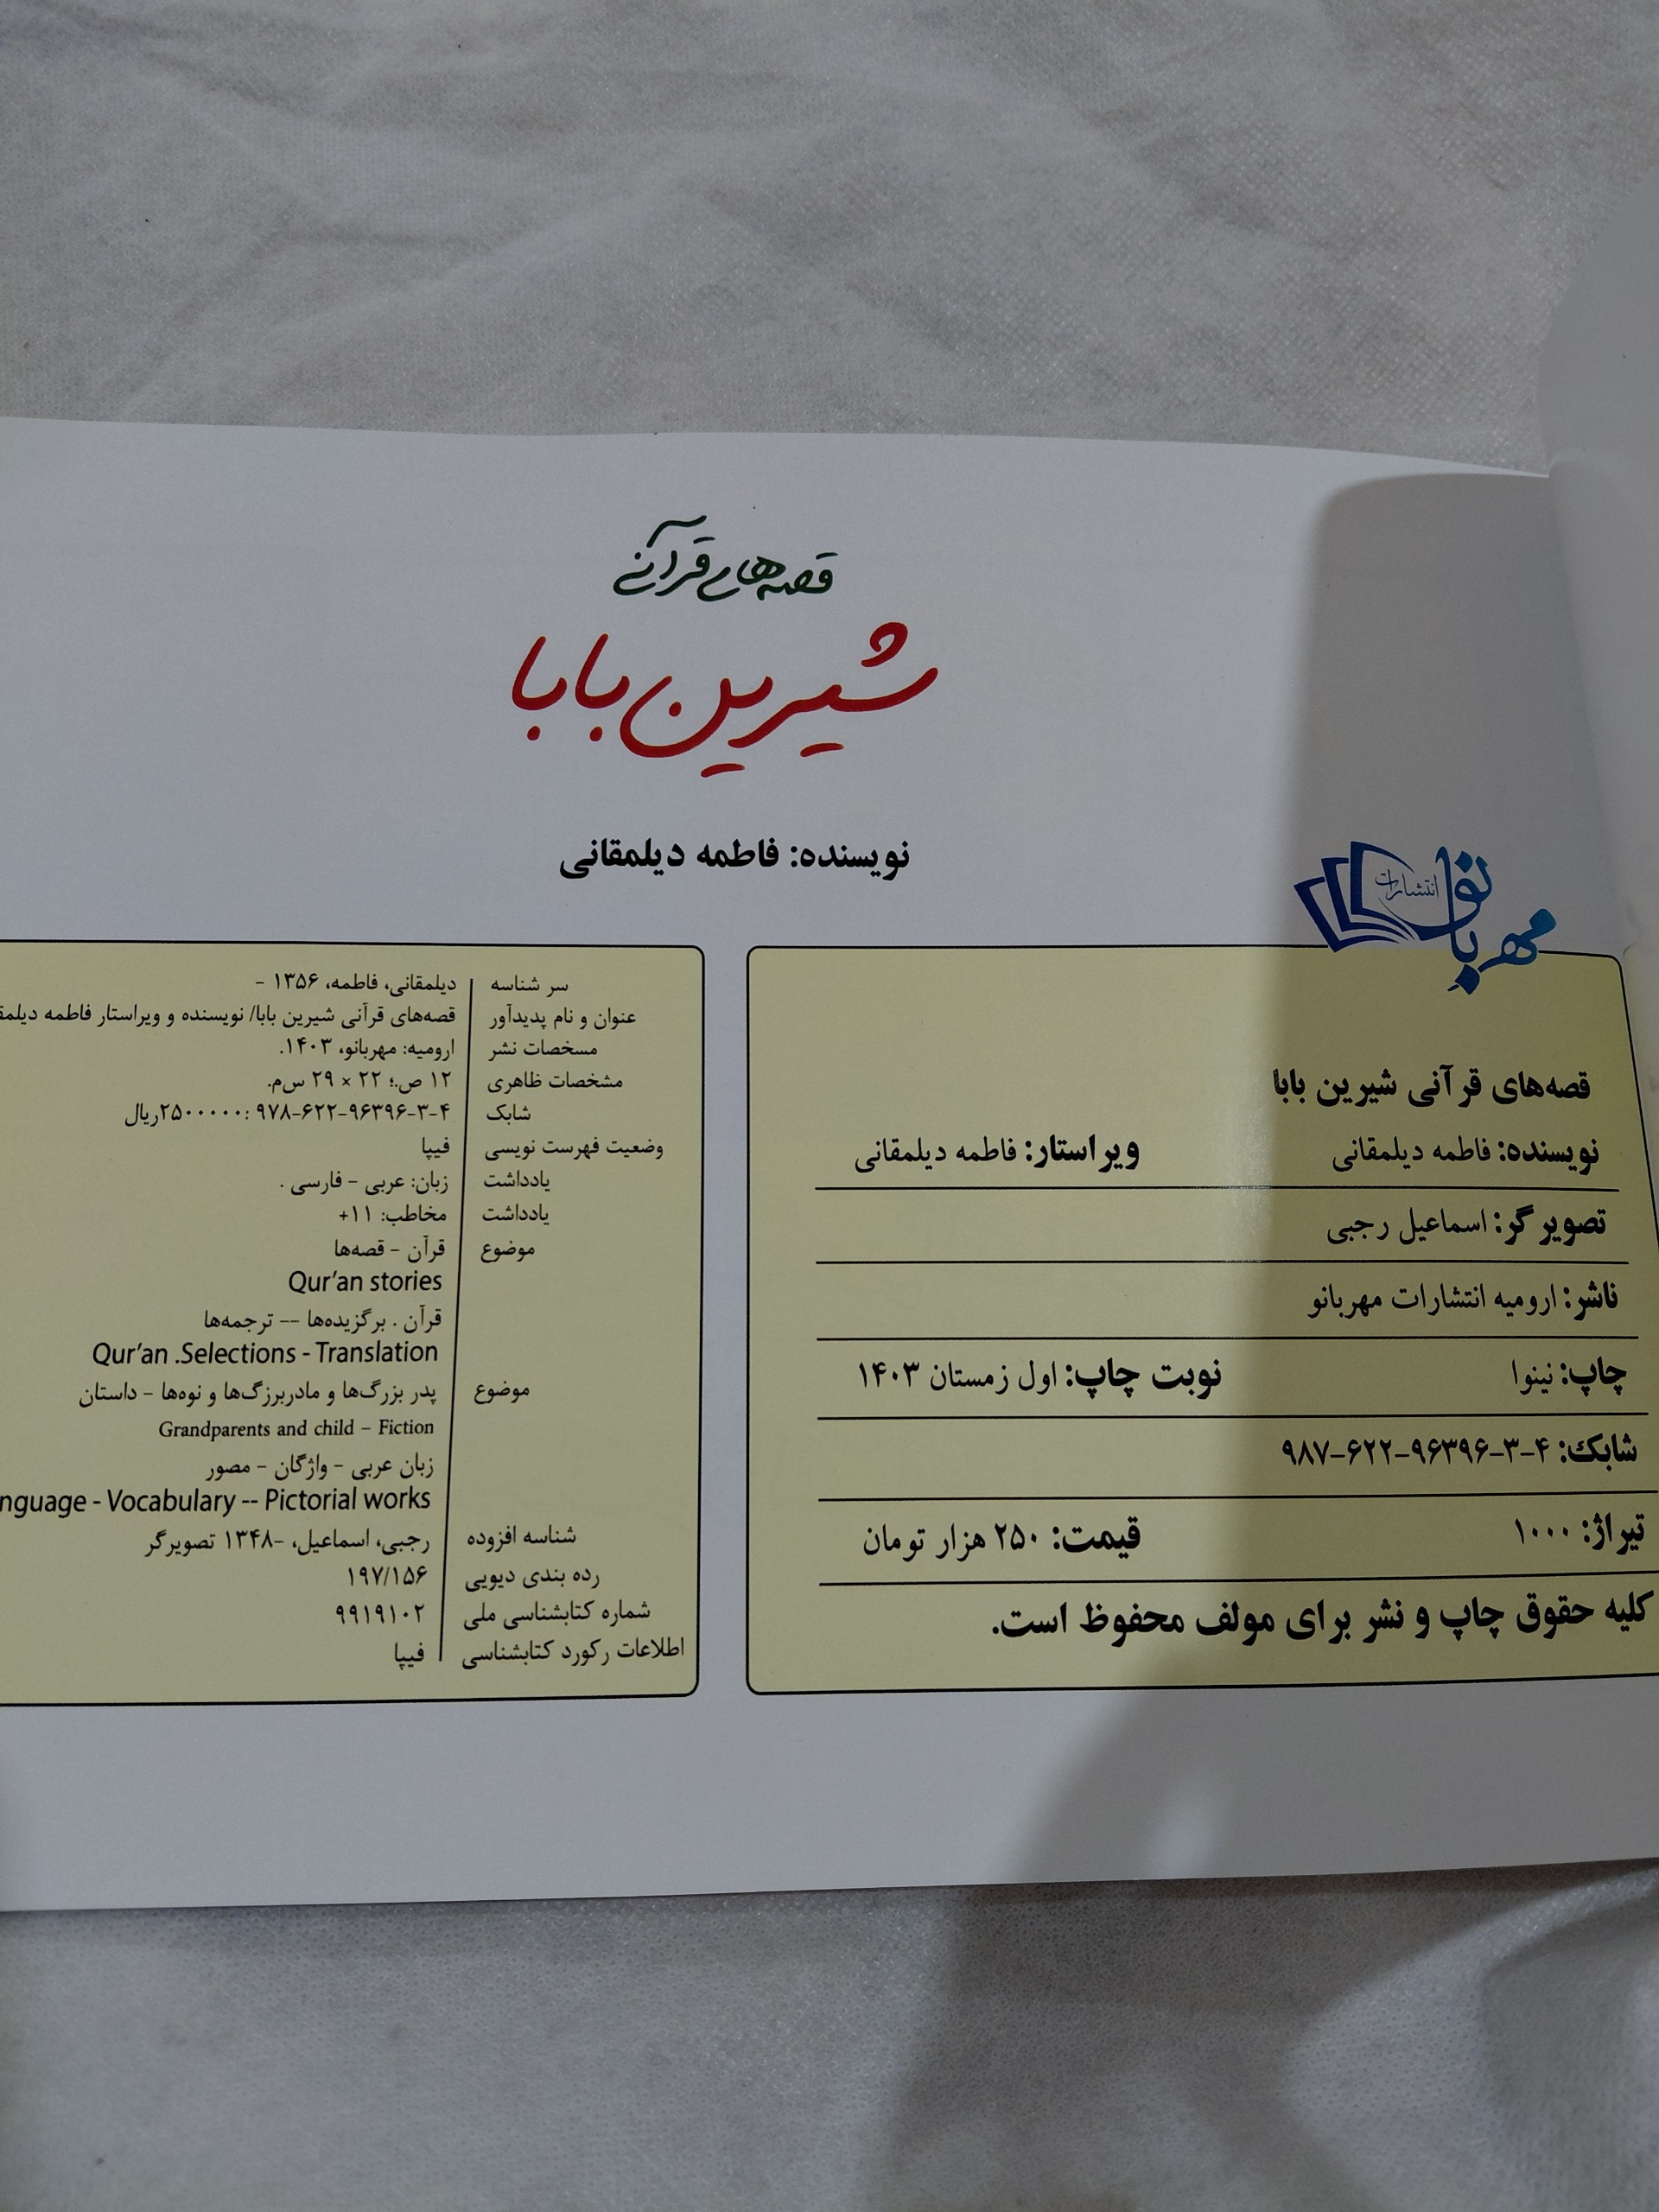 قصه‌های قرآنی
شیرین بابا
نویسنده: فاطمه دیلمقانی
انتشارات مهربانو
قصه‌های قرآنی شیرین بابا
نویسنده: فاطمه دیلمقانی ویراستار: فاطمه دیلمقانی
تصویر گر: اسماعیل رجبی
ناشر: ارومیه انتشارات مهربانو
چاپ: نینوا نوبت چاپ: اول زمستان ۱۴۰۳
شابک: ۴-۳-۹۶۳۹۶-۶۲۲-۹۸۷
تیراژ: ۱۰۰۰ قیمت: ۲۵۰ هزار تومان
کلیه حقوق چاپ و نشر برای مولف محفوظ است.
سر شناسه دیلمقانی، فاطمه، ۱۳۵۶ -
عنوان و نام پدیدآور قصه‌های قرآنی شیرین بابا/ نویسنده و ویراستار فاطمه
مسخصات نشر ارومیه: مهربانو، ۱۴۰۳.
مشخصات ظاهری ۱۲ ص.؛ ۲۲ × ۲۹ س‌م.
شابک ۴-۳-۹۶۳۹۶-۶۲۲-۹۷۸ :۲۵۰۰۰۰۰ریال
وضعیت فهرست نویسی فیپا
یادداشت زبان: عربی - فارسی .
یادداشت مخاطب: ۱۱+
موضوع قرآن - قصه‌ها
Qur'an stories
قرآن . برگزیده‌ها -- ترجمه‌ها
Qur'an .Selections - Translation
موضوع پدر بزرگ‌ها و مادربرزگ‌ها و نوه‌ها - داستان
Grandparents and child – Fiction
زبان عربی - واژگان - مصور
nguage - Vocabulary -- Pictorial works
شناسه افزوده رجبی، اسماعیل، -۱۳۴۸ تصویرگر
رده بندی دیویی ۱۹۷/۱۵۶
شماره کتابشناسی ملی ۹۹۱۹۱۰۲
اطلاعات رکورد کتابشناسی فیپا